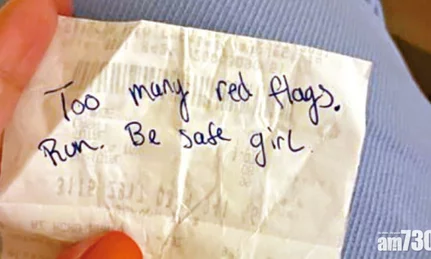 Too many red flags.
Run. Be safe girl.
am730